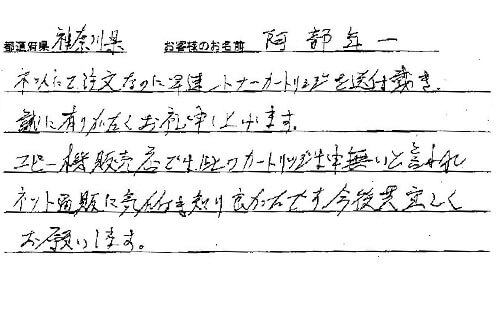 都道府県 神奈川県 お客様のお名前 阿部 一
ネットにて注文なのに早速トナーカートリッジを送付頂き、
誠に有りがたくお礼申し上げます。
コピー機販売店では カートリッジ 無いと言われて
ネット通販に気付き知り良かったです今後共宜しく
お願いします。